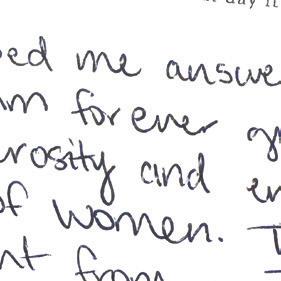 day it
ed me answe
m forever g
rosity and en
of women. T
nt from